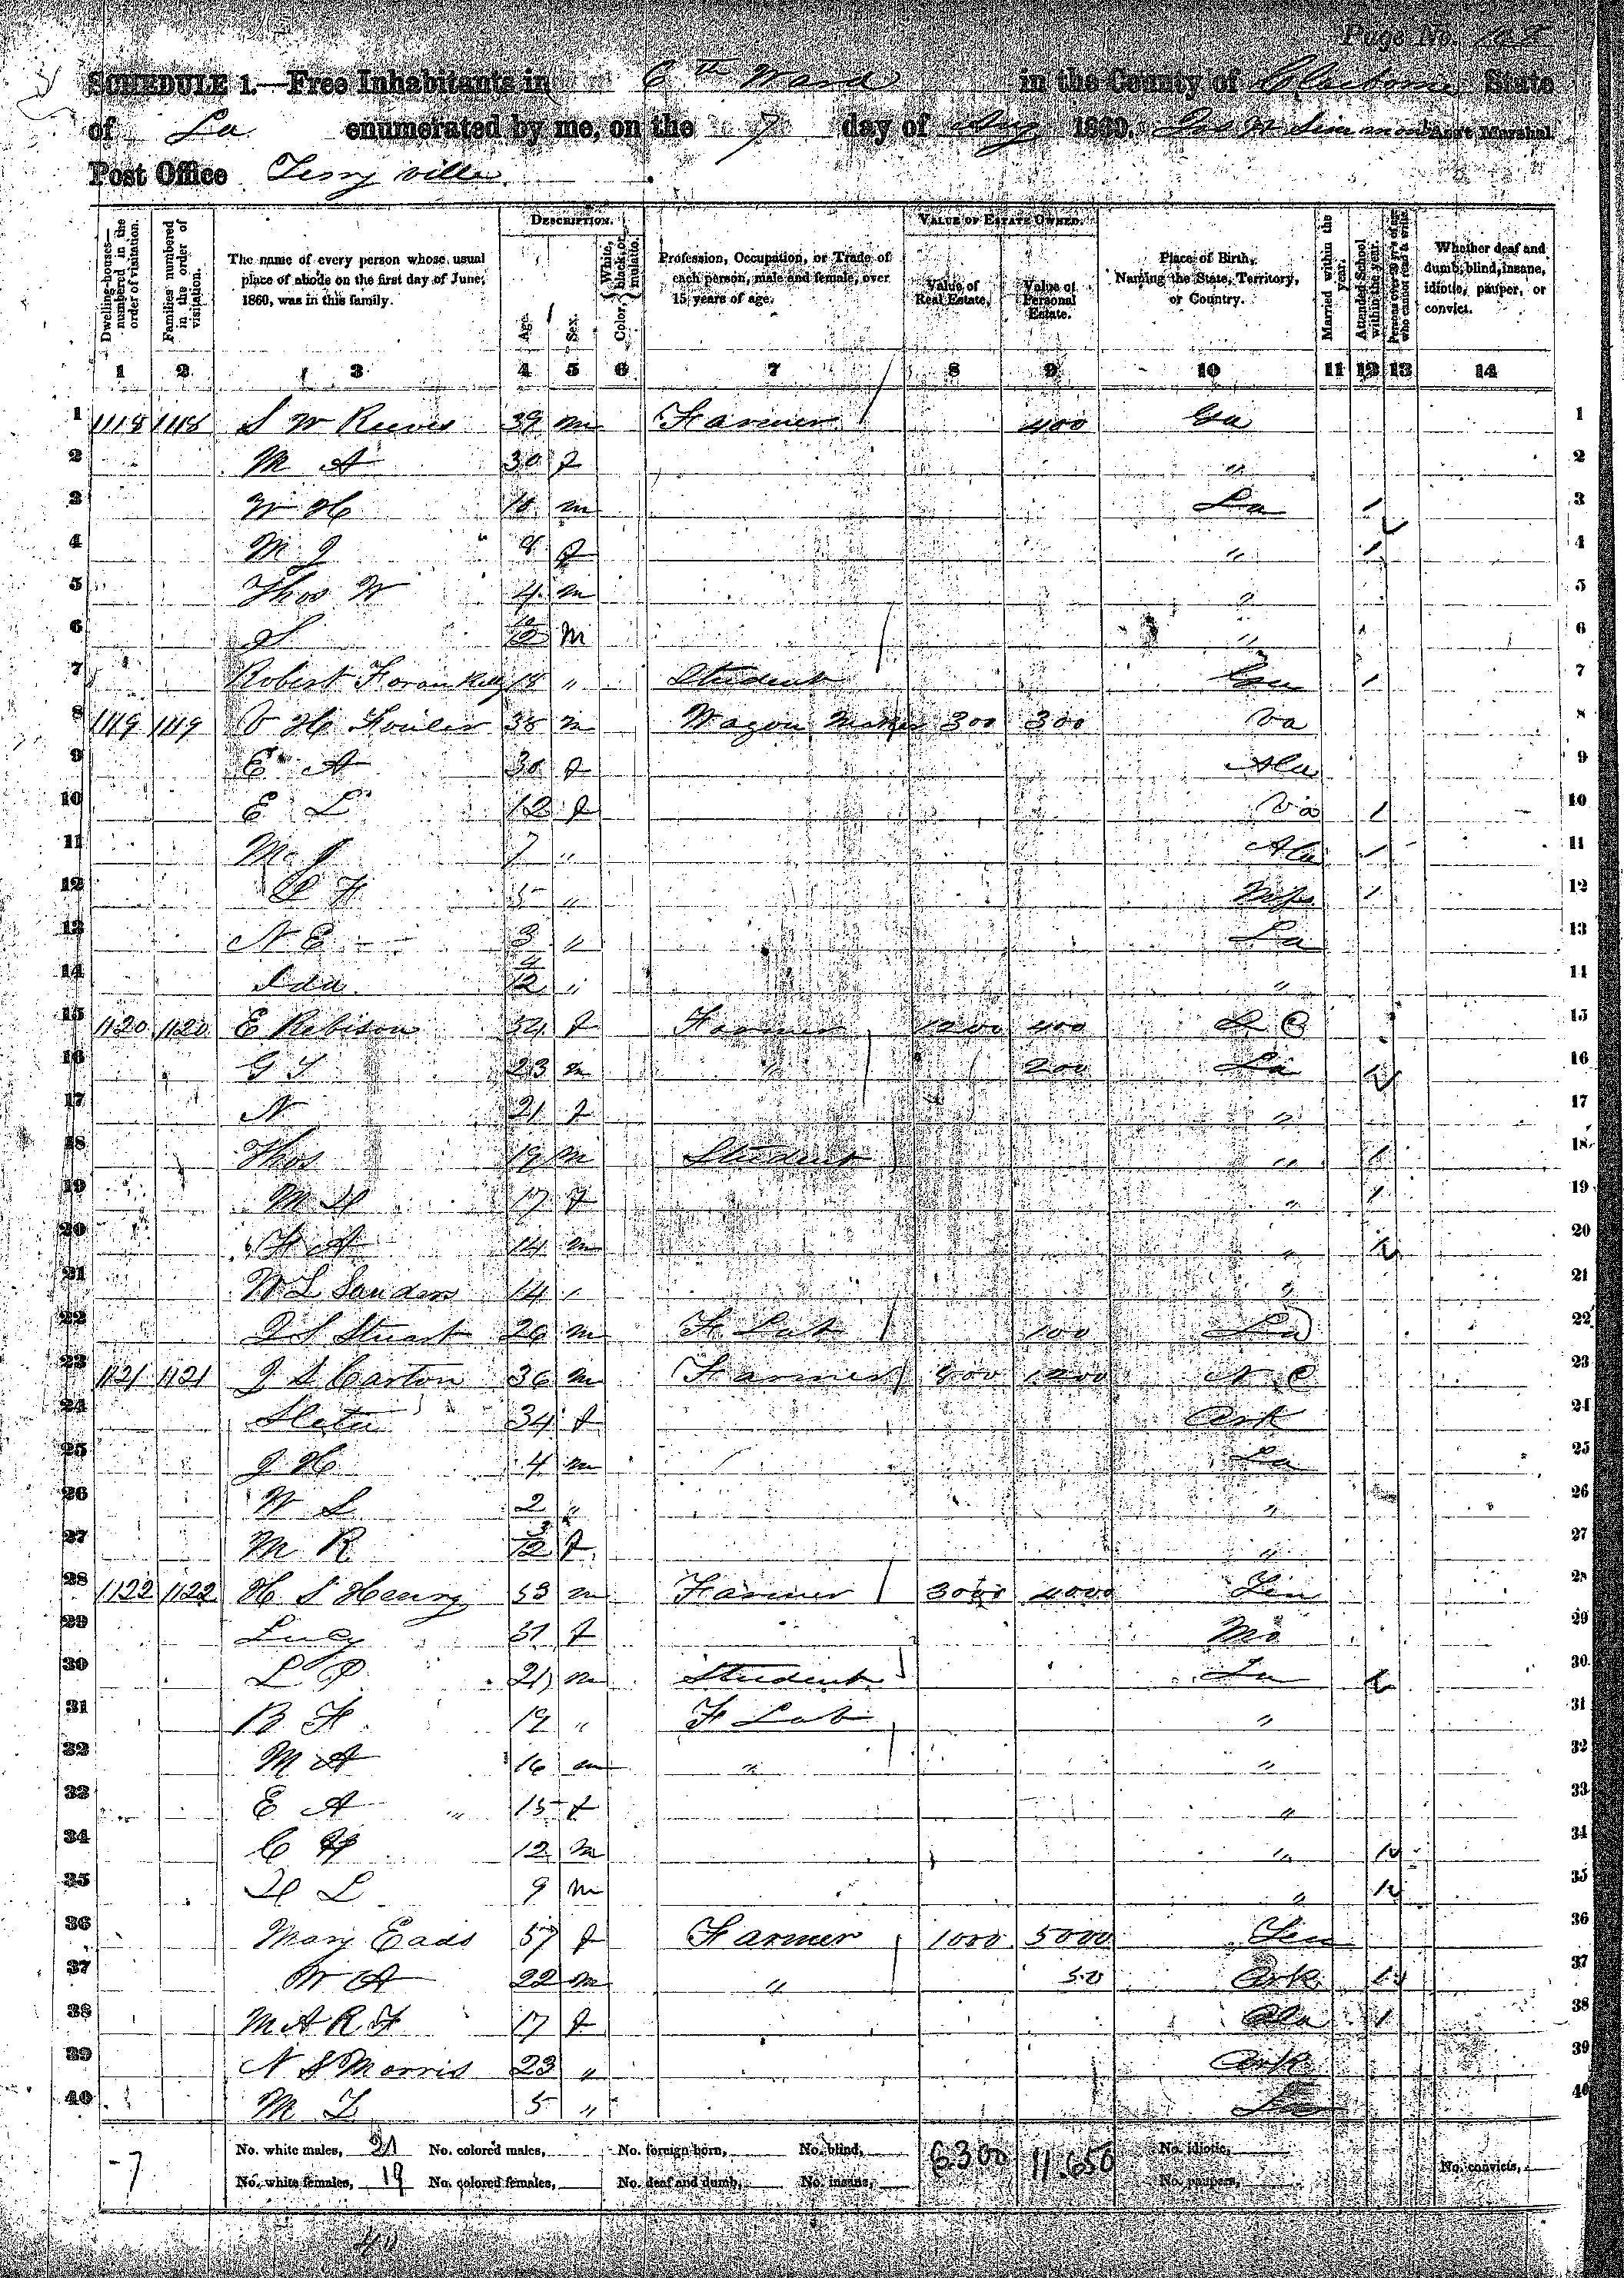 Page No.
SCHEDULE 1.—Free Inhabitants in 6th Ward in the County of Claiborne State
of La enumerated by me, on the 7 day of Aug 1860. Ass't Marshal.
Post Office
Dwelling-houses—numbered in the order of visitation.
Families numbered in the order of visitation.
The name of every person whose usual place of abode on the first day of June, 1860, was in this family.
DESCRIPTION.
Age.
Sex.
Color, White, black, or mulatto.
Profession, Occupation, or Trade of each person, male and female, over 15 years of age.
VALUE OF ESTATE OWNED.
Value of Real Estate.
Value of Personal Estate.
Place of Birth, Naming the State, Territory, or Country.
Married within the year.
Attended School within the year.
Persons over 20 y'rs of age who cannot read & write.
Whether deaf and dumb, blind, insane, idiotic, pauper, or convict.
1 2 3 4 5 6 7 8 9 10 11 12 13 14
1 1118 1118 S W Reeves 39 m Farmer 400 Ga 1
2 M A 30 f " 2
3 W H 10 m La / 3
4 M J 8 f " / 4
5 Thos W 4 m " 5
6 /12 m " 6
7 Robert 18 " Student Ga / 7
8 1119 1119 V H Fowler 38 m Wagon Maker 300 300 Va 8
9 E A 30 f Ala 9
10 E L 12 f Va / 10
11 7 " Ala / 11
12 5 " Miss / 12
13 N E 3 " La 13
14 Ida /12 " " 14
15 1120 1120 E Robison 54 f Farmer 1200 400 S C 15
16 G T 23 m " 200 La / 16
17 N 21 f " 17
18 Thos 19 m Student " / 18
19 17 f " / 19
20 F A 14 m " / 20
21 W L Sanders 14 " " 21
22 J S Stuart 26 m F Lab 100 La 22
23 1121 1121 J S Carton 36 m Farmer 800 1200 N C 23
24 34 f Ark 24
25 J H 4 m La 25
26 W L 2 " " 26
27 M R 3/12 f " 27
28 1122 1122 H S Henry 53 m Farmer 3000 4000 Ten 28
29 Lucy 37 f Mo 29
30 L P 21 m Student La / 30
31 B F 19 " F Lab " 31
32 M A 16 m " " 32
33 E A 15 f " 33
34 12 m " / 34
35 9 m " / 35
36 Mary Eads 57 f Farmer 1000 5000 Ten 36
37 W A 22 m " 50 Ark / 37
38 M A R F 17 f Ala / 38
39 N S Morris 23 " Ark 39
40 5 " La 40
No. white males, 21 No. colored males, No. foreign born, No. blind, 6300 11.650 No. idiotic,
-7 No. white females, 19 No. colored females, No. deaf and dumb, No. insane, No. paupers, No. convicts,
40